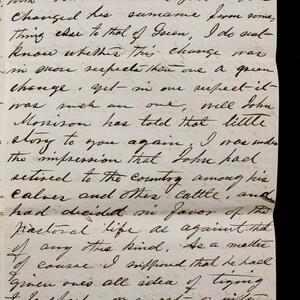 changed his surname from some
thing else to that of Green, I do not
know whether this change was
in more respects than one a green
change, yet in one respect it
was such an one, well John
Morrison has told that little
story to you again, I was under
the impression that John had
retired to the country among his
calves and other cattle, and
had decided in favor of the
pastoral life as against that
of any other kind. As a matter
of course I supposed that he had
given over all idea of